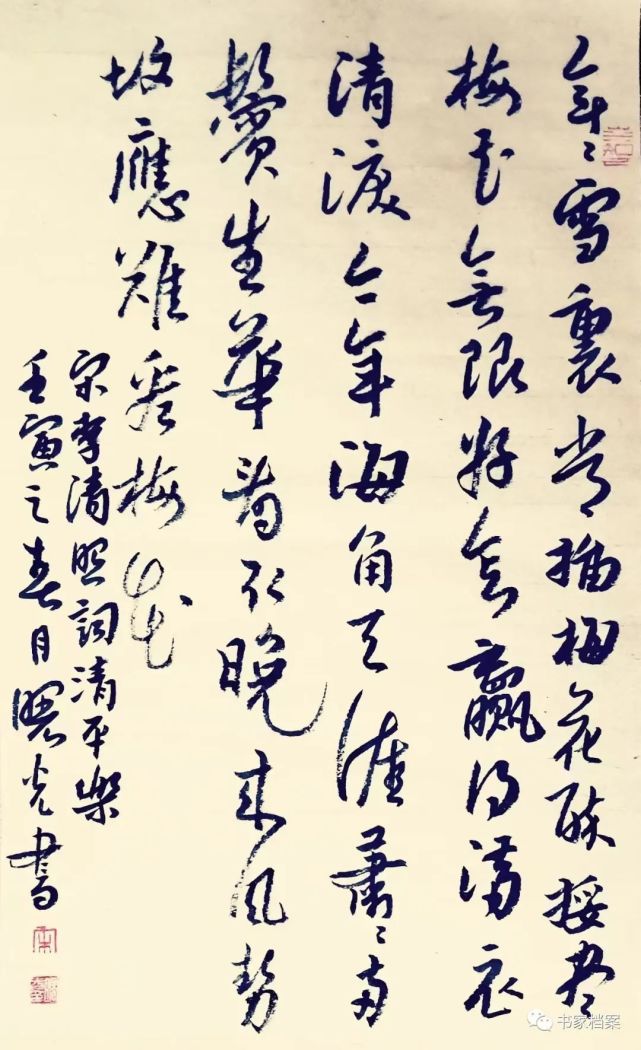 年〻雪裏常插梅花醉挼盡
梅花無限好意贏得滿衣
清淚今年海角天涯蕭〻兩
鬢生華看取晚來風勢
故應難看梅花
宋李清照詞清平樂
壬寅之春月曙光書
书家档案